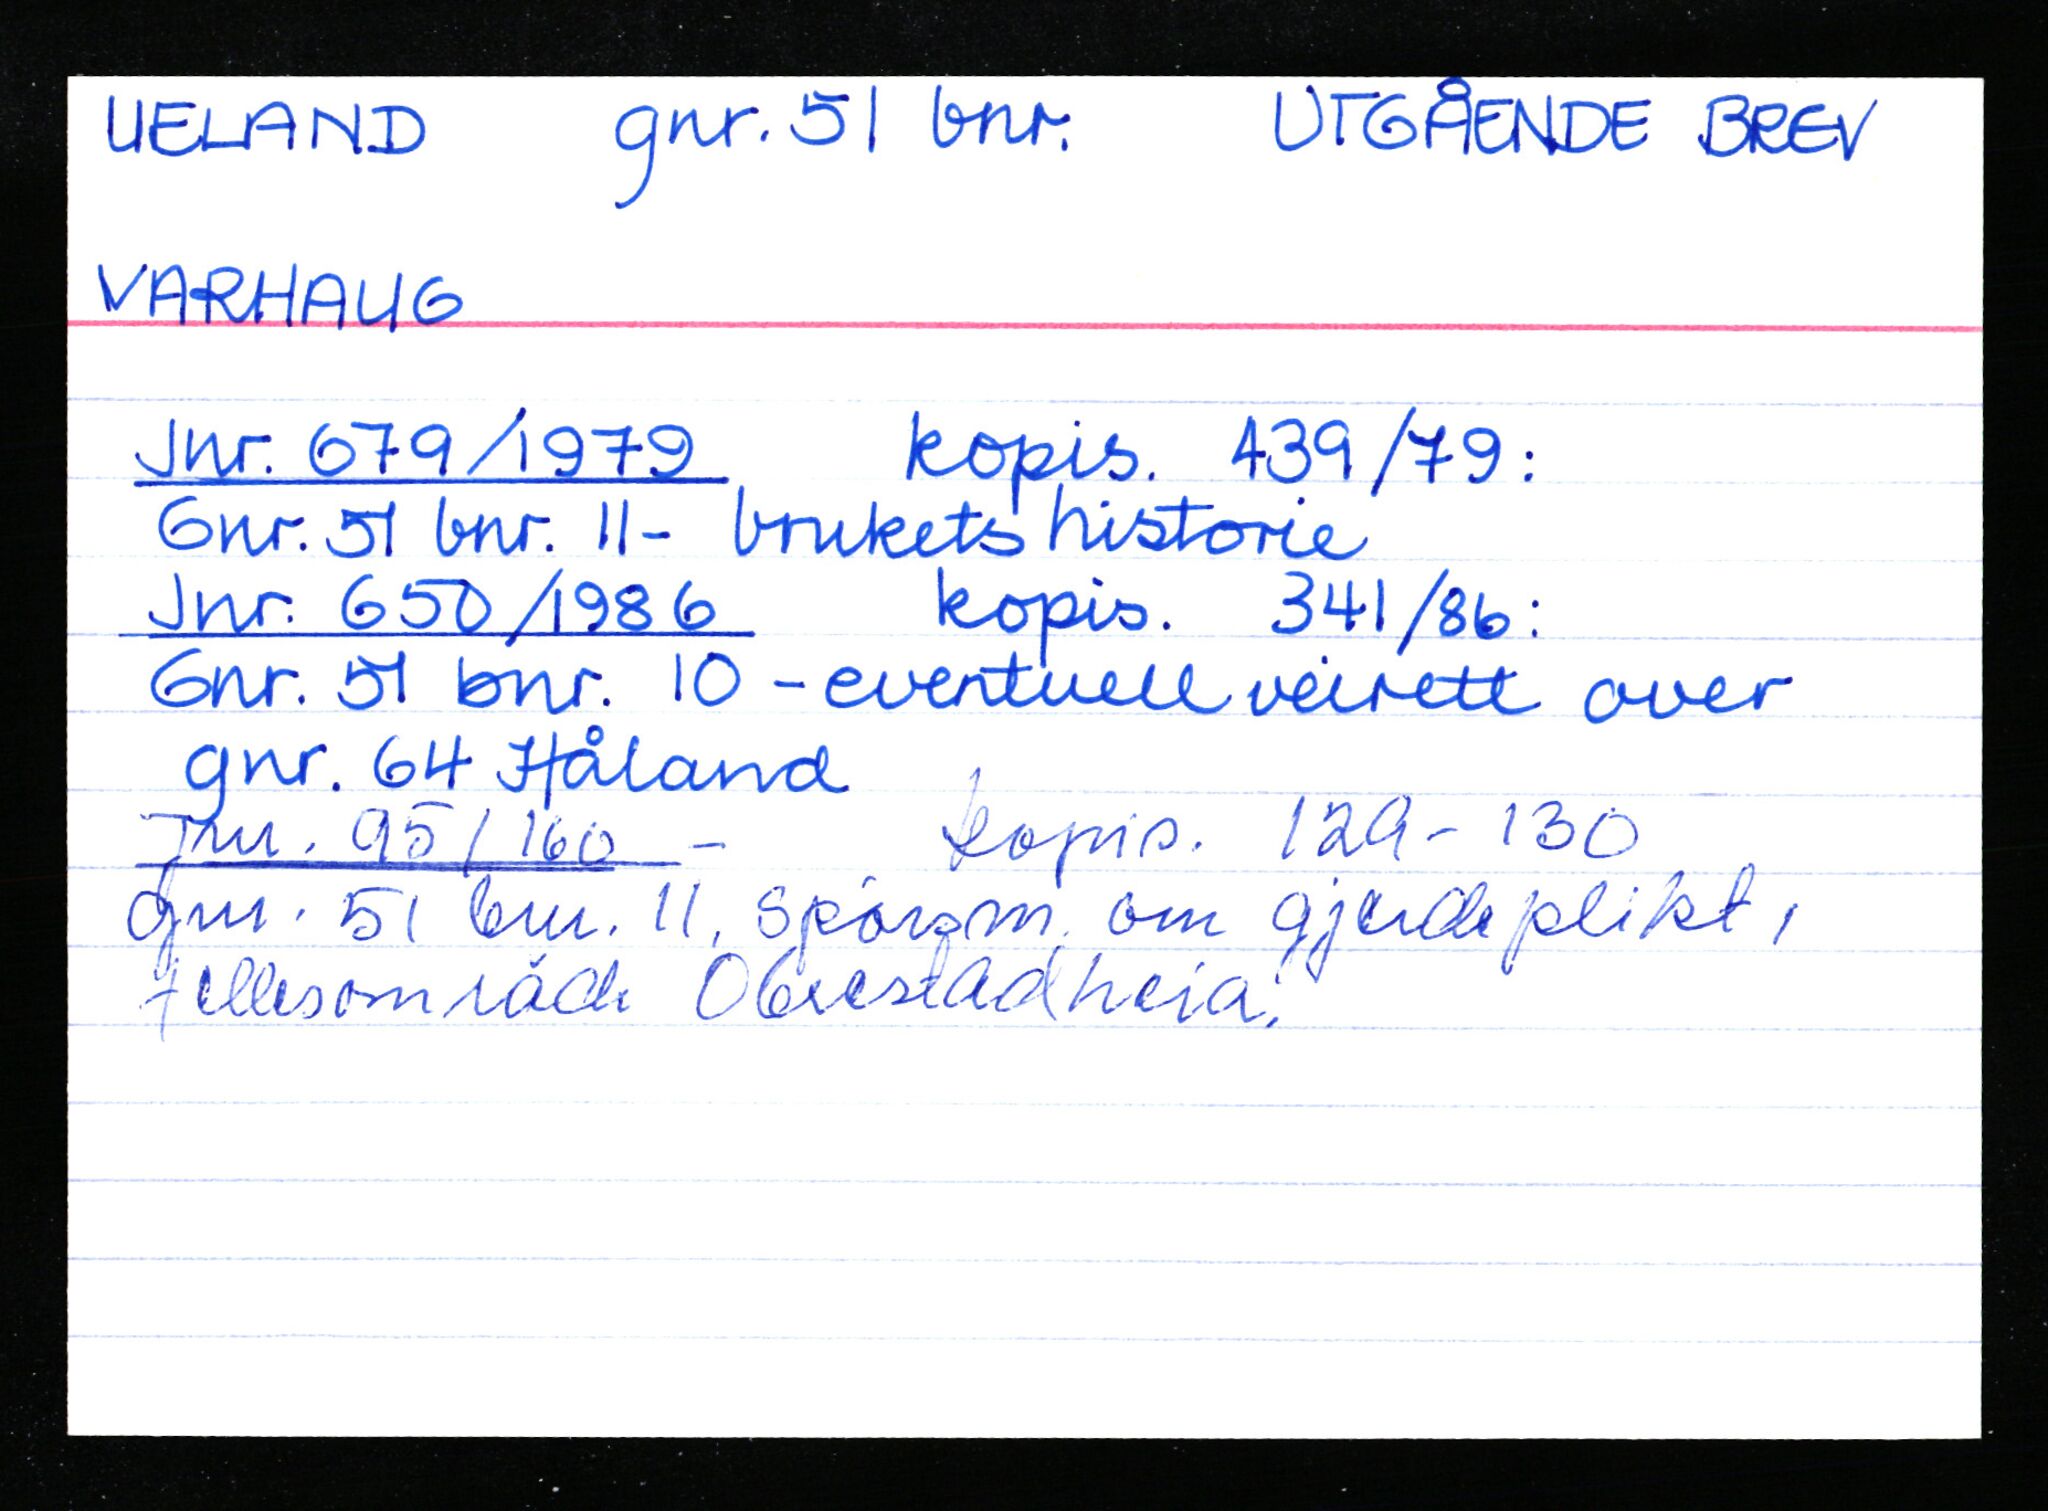 UELAND gnr. 51 bnr. UTGÅENDE BREV
VARHAUG
Jnr. 679/1979 kopis. 439/79:
Gnr. 51 bnr. 11- brukets historie
Jnr. 650/1986 kopis. 341/86:
Gnr. 51 bnr. 10 - eventuell veirett over
gnr. 64 Håland
Jnr. 95/160 - kopis. 129-130
gnr. 51 bnr. 11, spørsm. om gjerdeplikt,
fellesområde Obrestadheia.